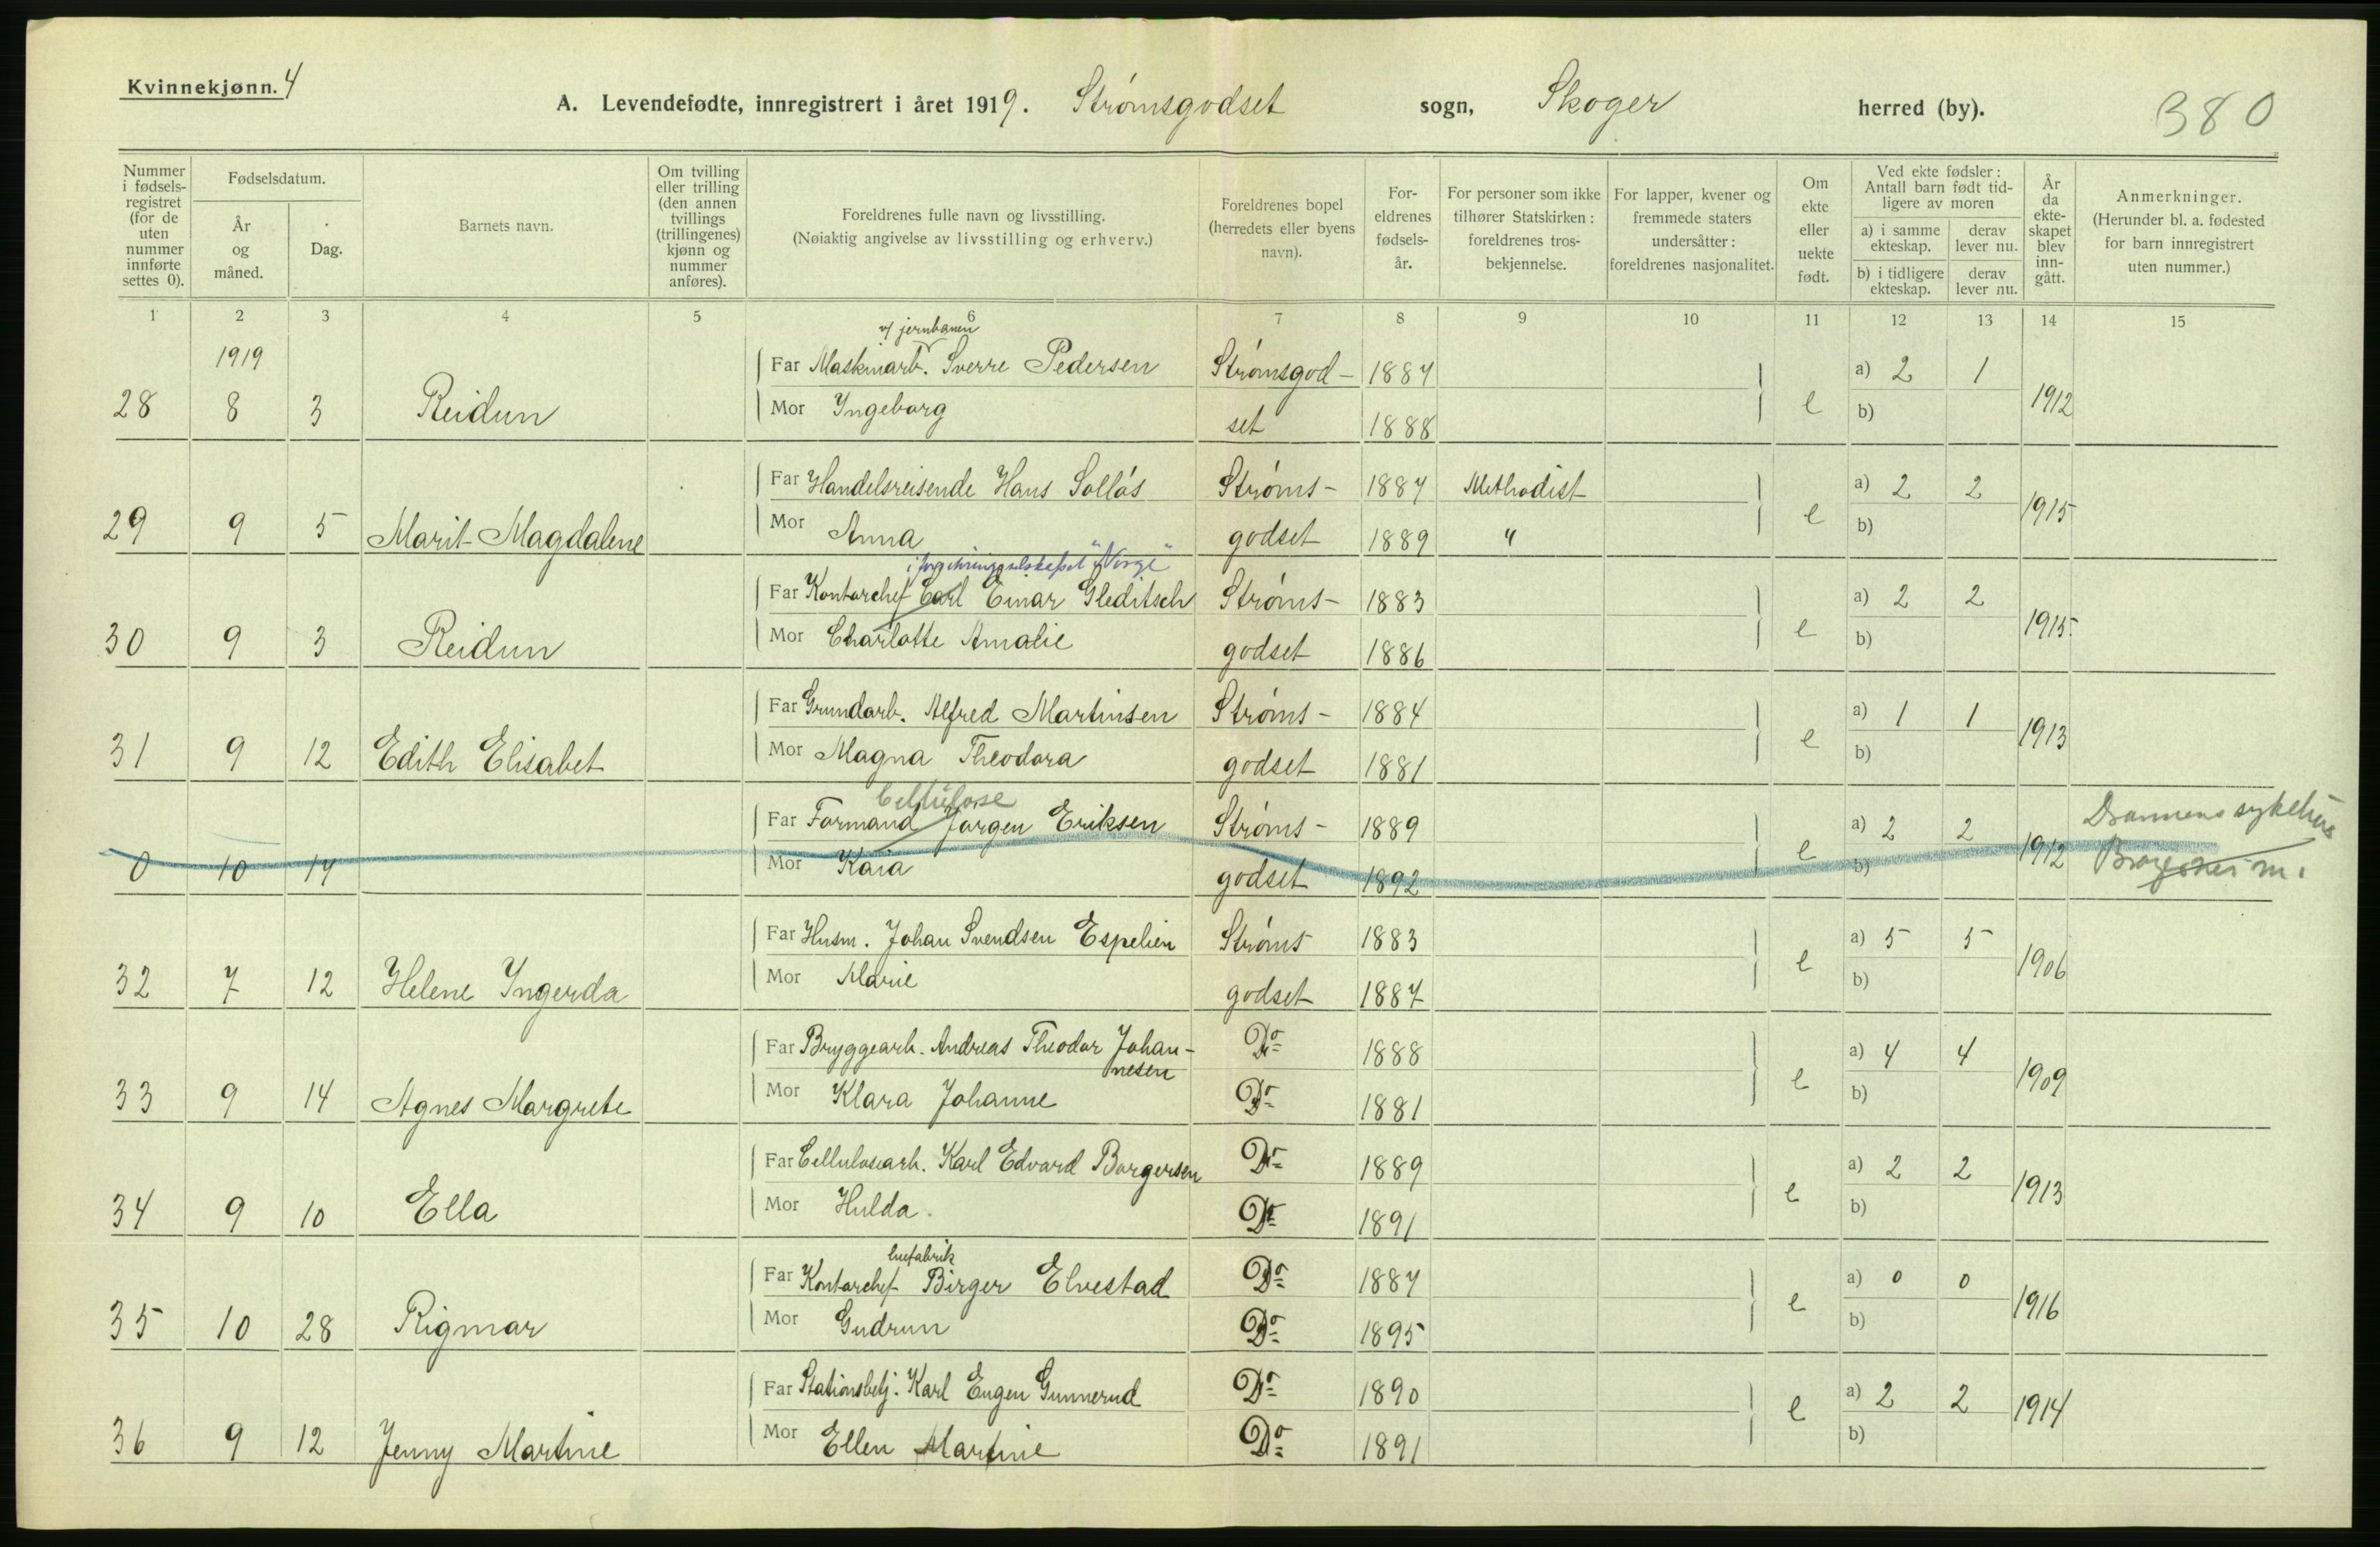 Kvinnekjønn. 4
A. Levendefødte, innregistrert i året 1919. Strømsgodset sogn, Skoger herred (by). 380
Nummer i fødsels-registret (for de uten nummer innførte settes 0).
Fødselsdatum.
År og måned.
Dag.
Barnets navn.
Om tvilling eller trilling (den annen tvillings (trillingenes) kjønn og nummer anføres).
Foreldrenes fulle navn og livsstilling.
(Nøiaktig angivelse av livsstilling og erhverv.)
Foreldrenes bopel (herredets eller byens navn).
For-eldrenes fødsels-år.
For personer som ikke tilhører Statskirken: foreldrenes tros-bekjennelse.
For lapper, kvener og fremmede staters undersåtter: foreldrenes nasjonalitet.
Om ekte eller uekte født.
Ved ekte fødsler: Antall barn født tid-ligere av moren
a) i samme ekteskap. derav lever nu.
b) i tidligere ekteskap. derav lever nu.
År da ekte-skapet blev inn-gått.
Anmerkninger.
(Herunder bl. a. fødested for barn innregistrert uten nummer.)
1 2 3 4 5 6 7 8 9 10 11 12 13 14 15
1919
v/ jernbanen
Far Maskinarb. Sverre Pedersen Strømsgod- 1887 a) 2 1
28 8 3 Reidun Mor Ingeborg set 1888 e b) 1912
Far Handelsreisende Hans Sollås Strøms- 1887 Methodist a) 2 2
29 9 5 Marit Magdalene Mor Anna godset 1889 " e b) 1915
i forsikringsselskapet "Norge"
Far Kontorchef Carl Einar Gleditsch Strøms- 1883 a) 2 2
30 9 3 Reidun Mor Charlotte Amalie godset 1886 e b) 1915.
Far Grundarb. Alfred Martinsen Strøms- 1884 a) 1 1
31 9 12 Edith Elisabet Mor Magna Theodora godset 1881 e b) 1913
Cellulose
Far Formand Jørgen Eriksen Strøms- 1889 a) 2 2 Drammens sykehus
0 10 14 Mor Kaia godset 1892 e b) 1912 Bragernes m.
Far Husm. Johan Svendsen Espelien Strøms 1883 a) 5 5
32 7 12 Helene Ingerda Mor Marie godset 1887 e b) 1906
Far Bryggearb. Andreas Theodor Johan- Do 1888 a) 4 4
nesen
33 9 14 Agnes Margrete Mor Klara Johanne Do 1881 e b) 1909
Far Cellulosearb. Karl Edvard Borgersen Do 1889 a) 2 2
34 9 10 Ella Mor Hulda. Do 1891 e b) 1913
Far Kontorchef Birger Elvestad Do 1887 a) 0 0
35 10 28 Rigmor Mor Gudrun Do 1895 e b) 1916
Far Stationsbetj. Karl Eugen Gunnerud Do 1890 a) 2 2
36 9 12 Jenny Martine Mor Ellen Martine Do 1891 e b) 1914